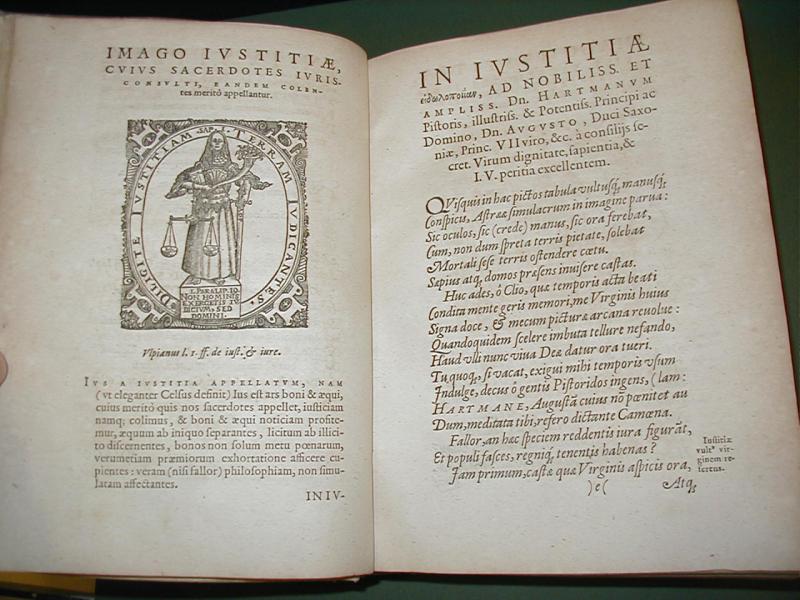 IMAGO IVSTITIÆ,
CVIVS SACERDOTES IVRIS-
CONSVLTI, EANDEM COLEN-
tes meritò appellantur.
DILIGITE IVSTITIAM SAP. I. TERRAM IVDICANTES.
2. PARALIP. 19
NON HOMINIS
EXERCETIS IV
DICIVM, SED
DOMINI.
Vlpianus l. 1. ff. de iust. & iure.
IVS A IVSTITIA APPELLATVM, NAM
(vt eleganter Celsus definit) Ius est ars boni & æqui,
cuius meritò quis nos sacerdotes appellet, iusticiam
namq; colimus, & boni & æqui noticiam profite-
mur, æquum ab iniquo separantes, licitum ab illici
to discernentes, bonos non solum metu pœnarum,
verumetiam præmiorum exhortatione afficere cu-
pientes: veram (nisi fallor) philosophiam, non simu-
latam affectantes.
IN IV-
IN IVSTITIÆ
εἰδωλοποιίαν, AD NOBILISS. ET
AMPLISS. Dn. HARTMANVM
Pistoris, illustriss. & Potentiss. Principi ac
Domino, Dn. AVGVSTO, Duci Saxo-
niæ, Princ. VII viro, &c. à consilijs se-
cret. Virum dignitate, sapientia, &
I.V. peritia excellentem.
QVisquis in hac pictos tabula vultusq́, manusq́,
Conspicis, Astrææ simulacrum in imagine parua:
Sic oculos, sic (crede) manus, sic ora ferebat,
Cum, non dum spreta terris pietate, solebat
Mortali sese terris ostendere cœtu.
Sæpius atq, domos præsens inuisere castas.
Huc ades, ô Clio, quæ temporis acta beati
Condita mente geris memori, me Virginis huius
Signa doce, & mecum picturæ arcana reuolue:
Quandoquidem scelere imbuta tellure nefando,
Haud vlli nunc viua Deæ datur ora tueri.
Tu quoq, si vacat, exigui mihi temporis vsum
Indulge, decus ô gentis Pistoridos ingens, (lam:
HARTMANE, Augustā cuius nō pœnitet au
Dum, meditata tibi, refero dictante Camœna.
Fallor, an hæc speciem reddentis iura figurāt,
Et populi fasces, regniq, tenentis habenas?
Iustitiæ
vult' vir-
ginem re-
ferens.
Iam primum, castæ quæ Virginis aspicis ora,
)e(
Atq,